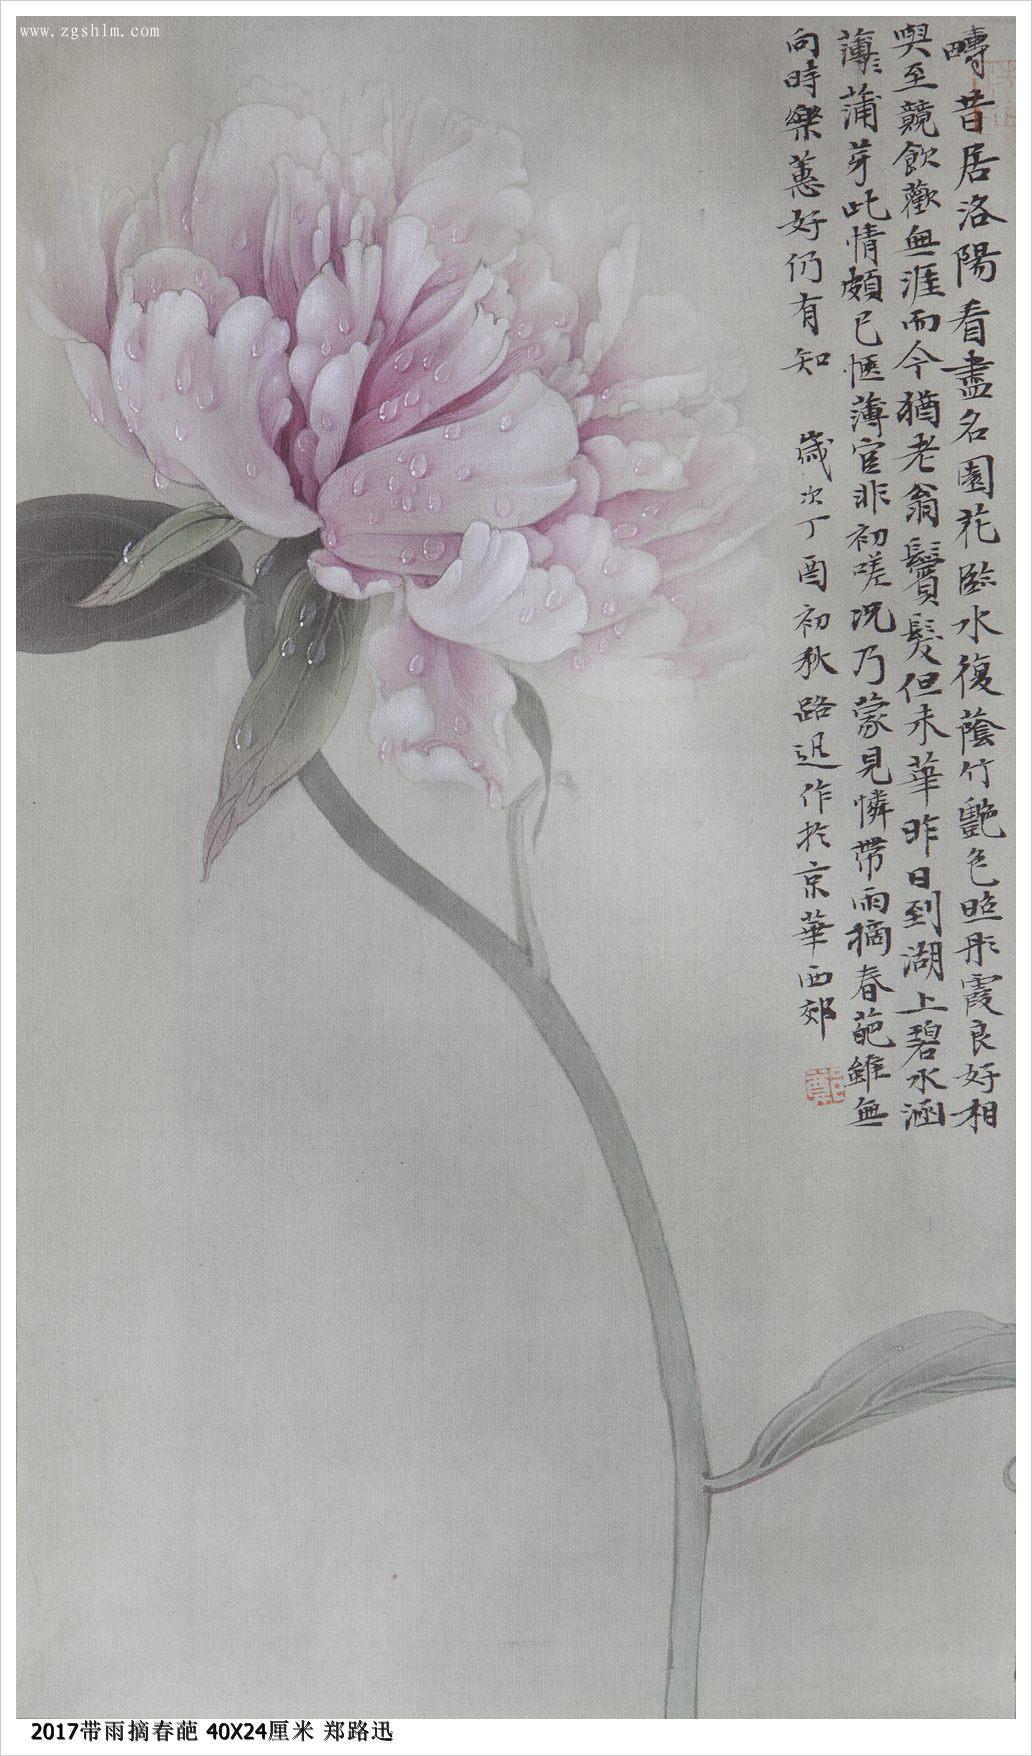 www.zgshlm.com
疇昔居洛陽看盡名園花臨水復蔭竹艷色照彤霞良好相
與至競飲歡無涯而今猶老翁鬢髮但未華昨日到湖上碧水涵
蒲芽此情頗已愜薄宦非初嗟況乃蒙見憐帶雨摘春葩雖無
向時樂蕙好仍有知
歲次丁酉初秋路迅作於京華西郊
2017带雨摘春葩 40X24厘米 郑路迅